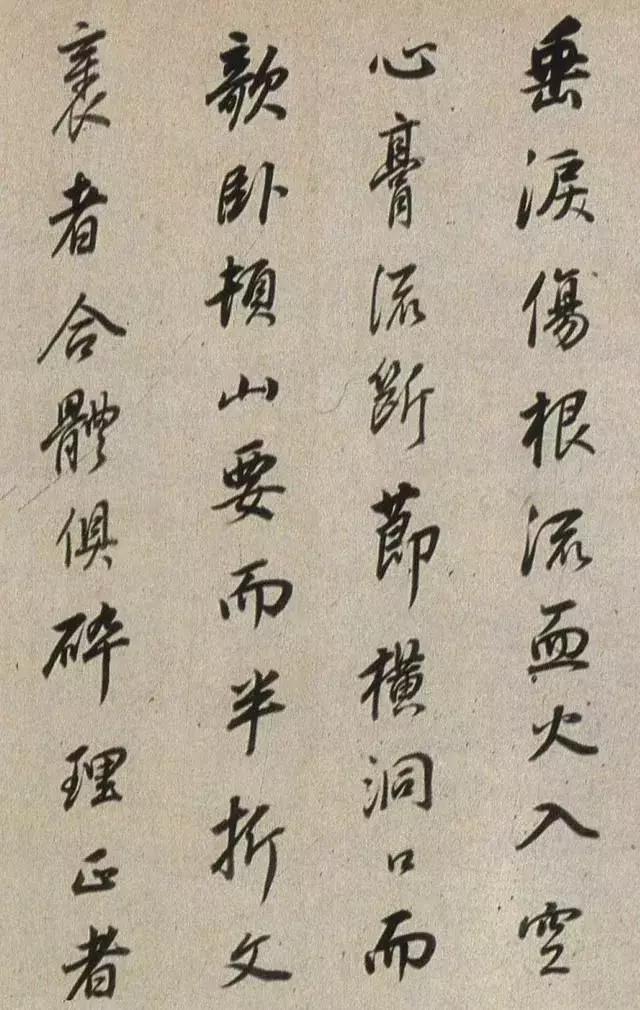 垂淚傷根流血火入空
心膏流斷節橫洞口而
欹卧頓山要而半折文
衺者合體俱碎理正者